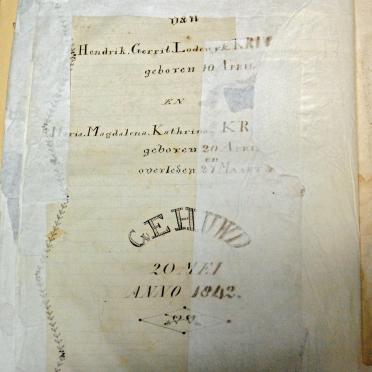 van
Hendrik. Gerrit. Lodewyk KRI
geboren 10 APRIL
EN
Maria. Magdalena. Kathrina KR
geboren 20 APRIL
en
overleden 27 MAART
GEHUWD
20 MEI
ANNO 1842.